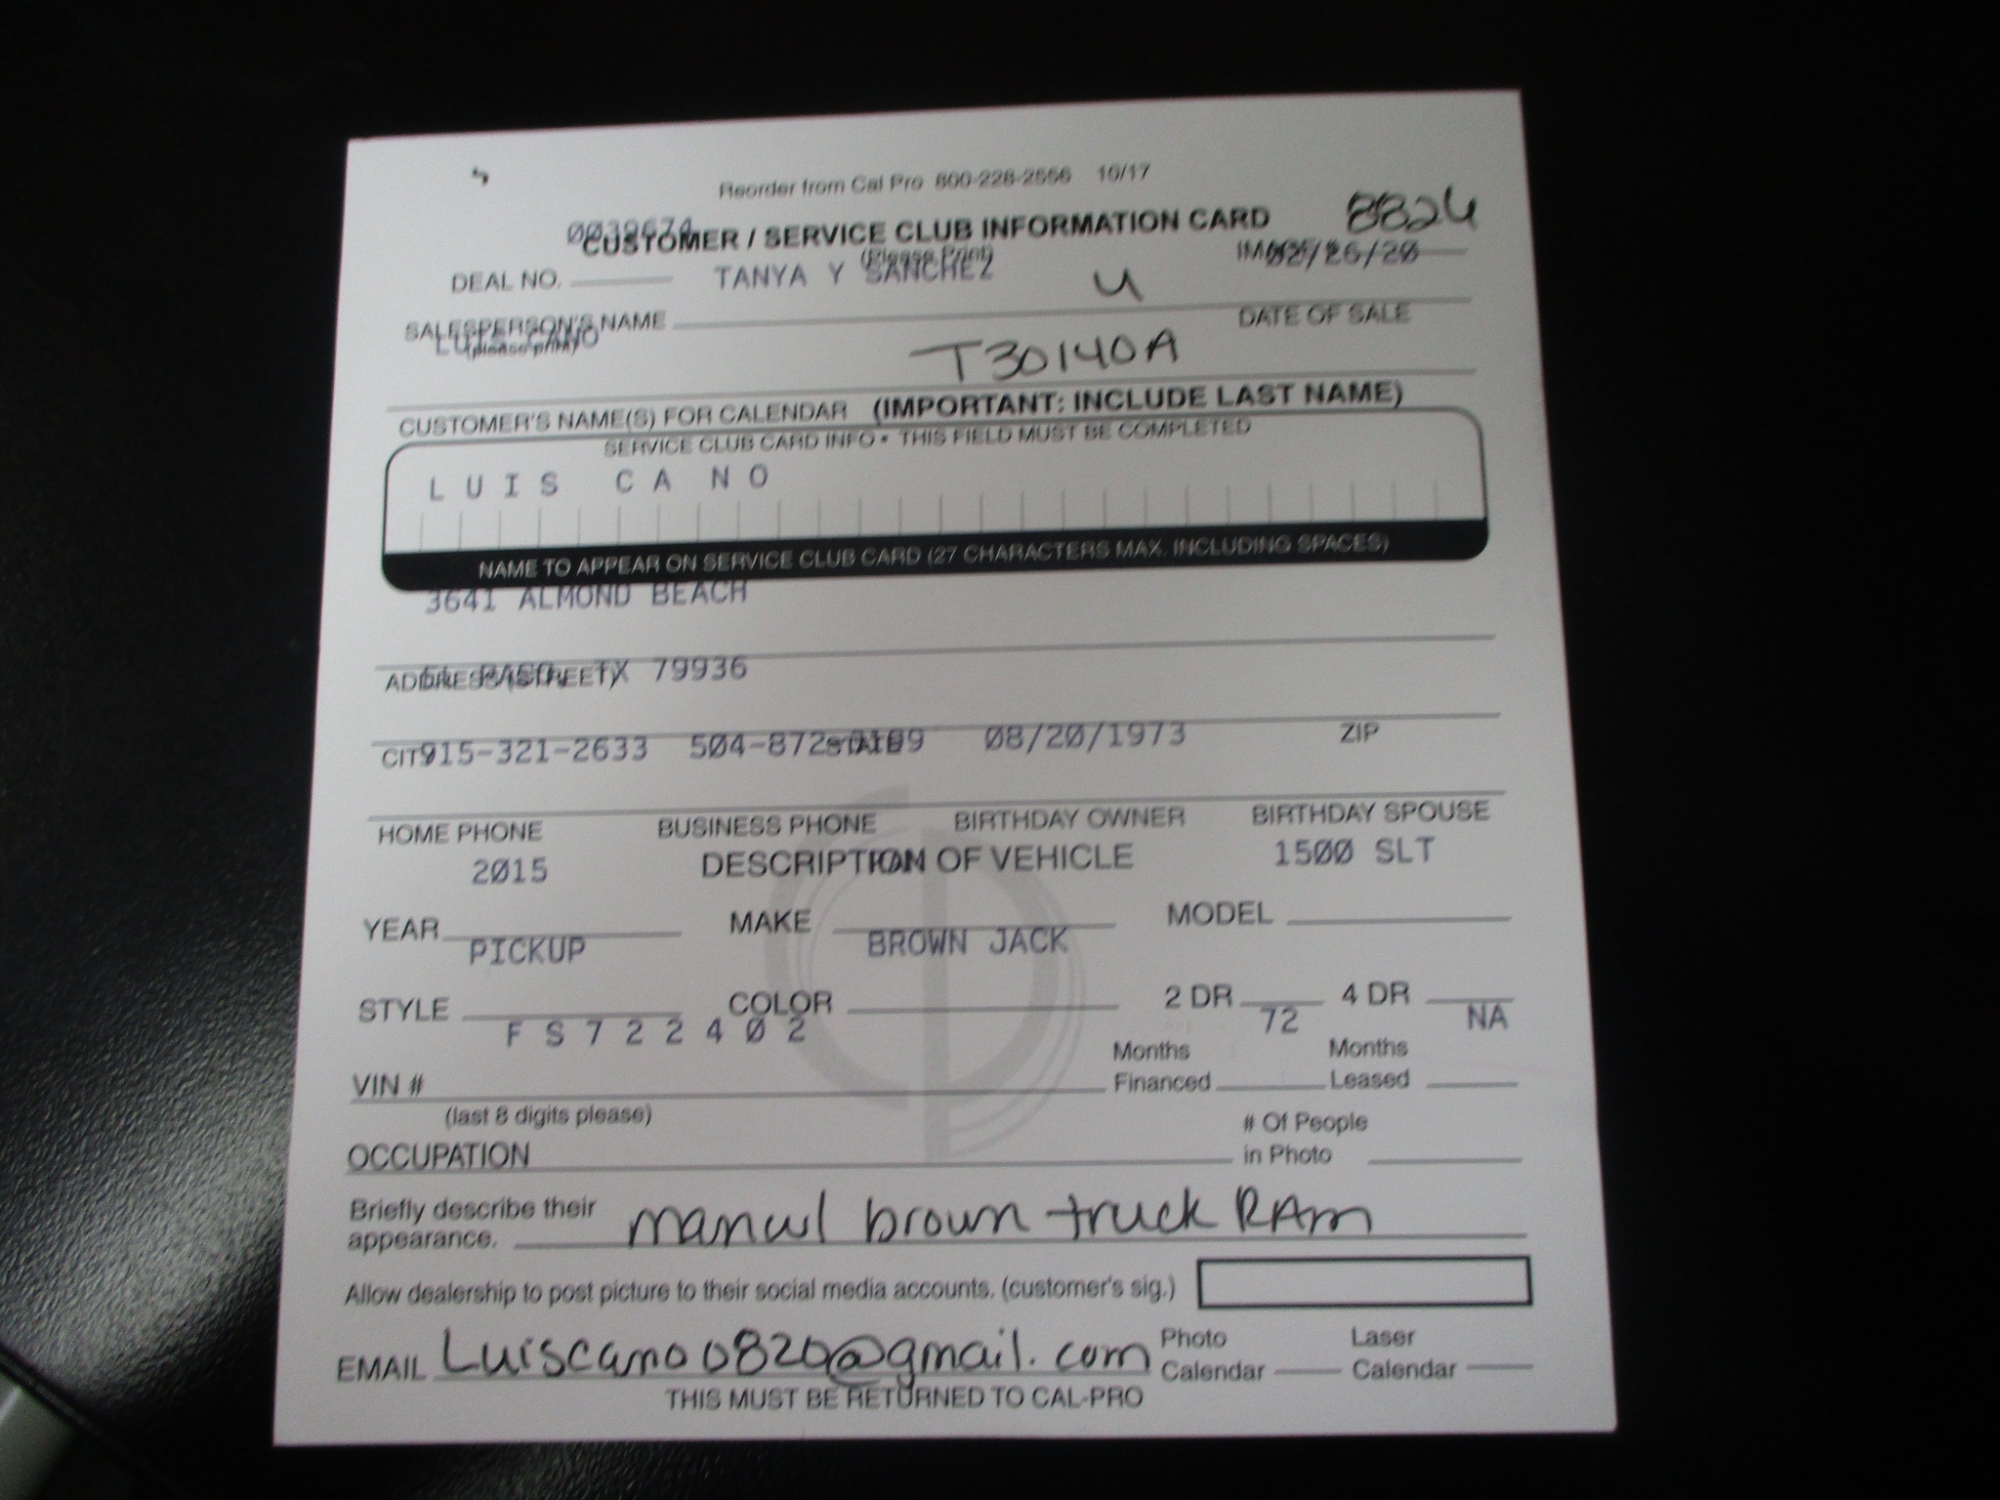 Reorder from Cal Pro 800-228-2556 10/17
8824
0039674
CUSTOMER / SERVICE CLUB INFORMATION CARD
(Please Print)
DEAL NO. TANYA Y SANCHEZ 02/26/20
SALESPERSON'S NAME DATE OF SALE
(please print)
LUIS CANO
T30140A
CUSTOMER'S NAME(S) FOR CALENDAR (IMPORTANT: INCLUDE LAST NAME)
SERVICE CLUB CARD INFO • THIS FIELD MUST BE COMPLETED
LUIS CANO
NAME TO APPEAR ON SERVICE CLUB CARD (27 CHARACTERS MAX. INCLUDING SPACES)
3641 ALMOND BEACH
ADDRESS (STREET)
EL PASO, TX 79936
CITY STATE ZIP
915-321-2633 504-872-0189 08/20/1973
HOME PHONE BUSINESS PHONE BIRTHDAY OWNER BIRTHDAY SPOUSE
DESCRIPTION OF VEHICLE
2015 1500 SLT
YEAR MAKE MODEL
PICKUP BROWN JACK
STYLE COLOR 2 DR 4 DR
FS722402 72 NA
VIN # Months Financed Months Leased
(last 8 digits please)
OCCUPATION # Of People in Photo
Briefly describe their appearance. brown truck RAM
Allow dealership to post picture to their social media accounts. (customer's sig.)
EMAIL Luiscano0820@gmail.com Photo Calendar Laser Calendar
THIS MUST BE RETURNED TO CAL-PRO